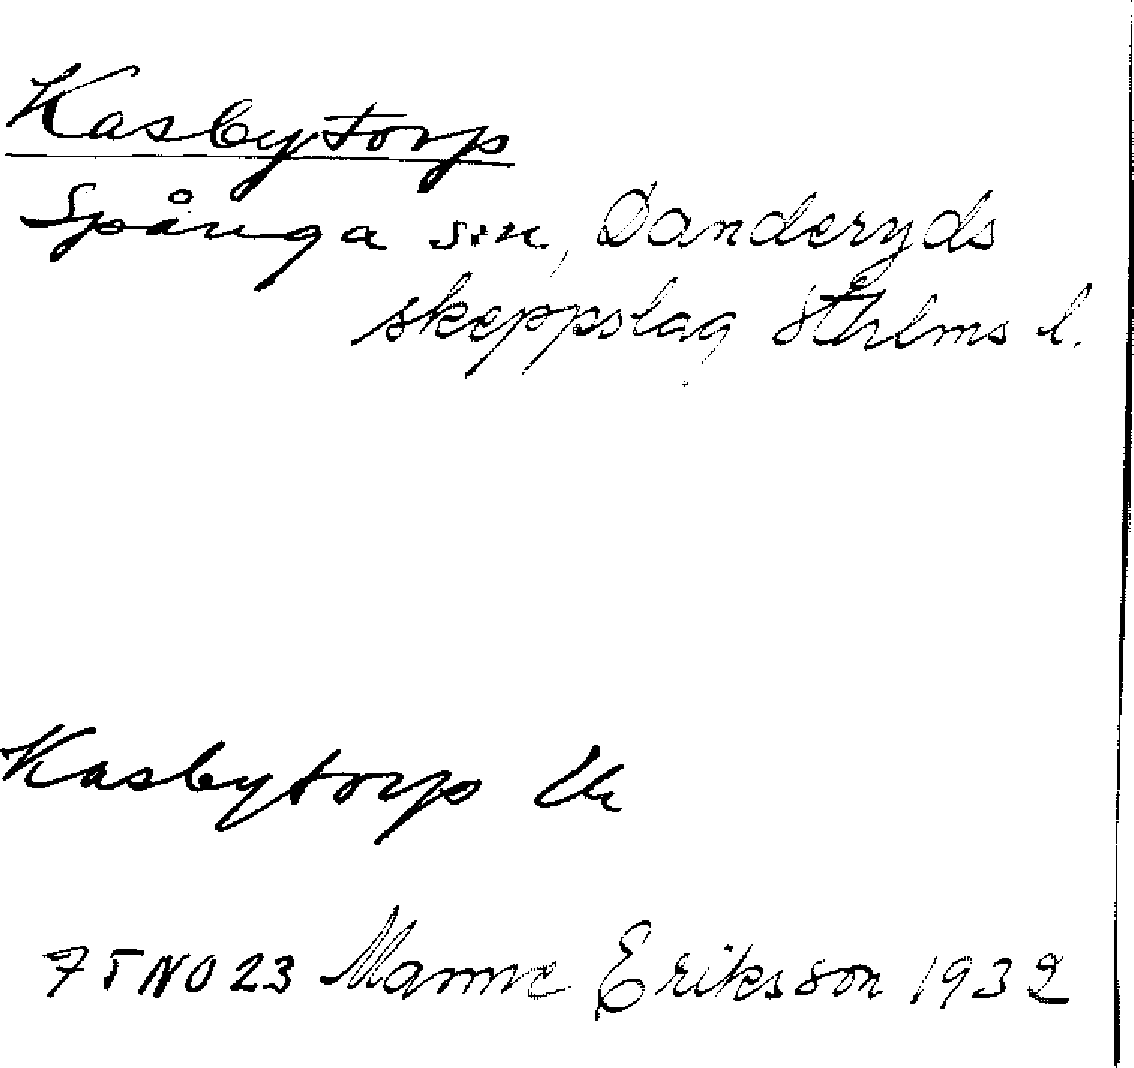 Kasbytorp
Spånga sn, Danderyds
skeppslag Sthlms l.
Kasbytorp
7 T NO 23 Manne Eriksson 1932